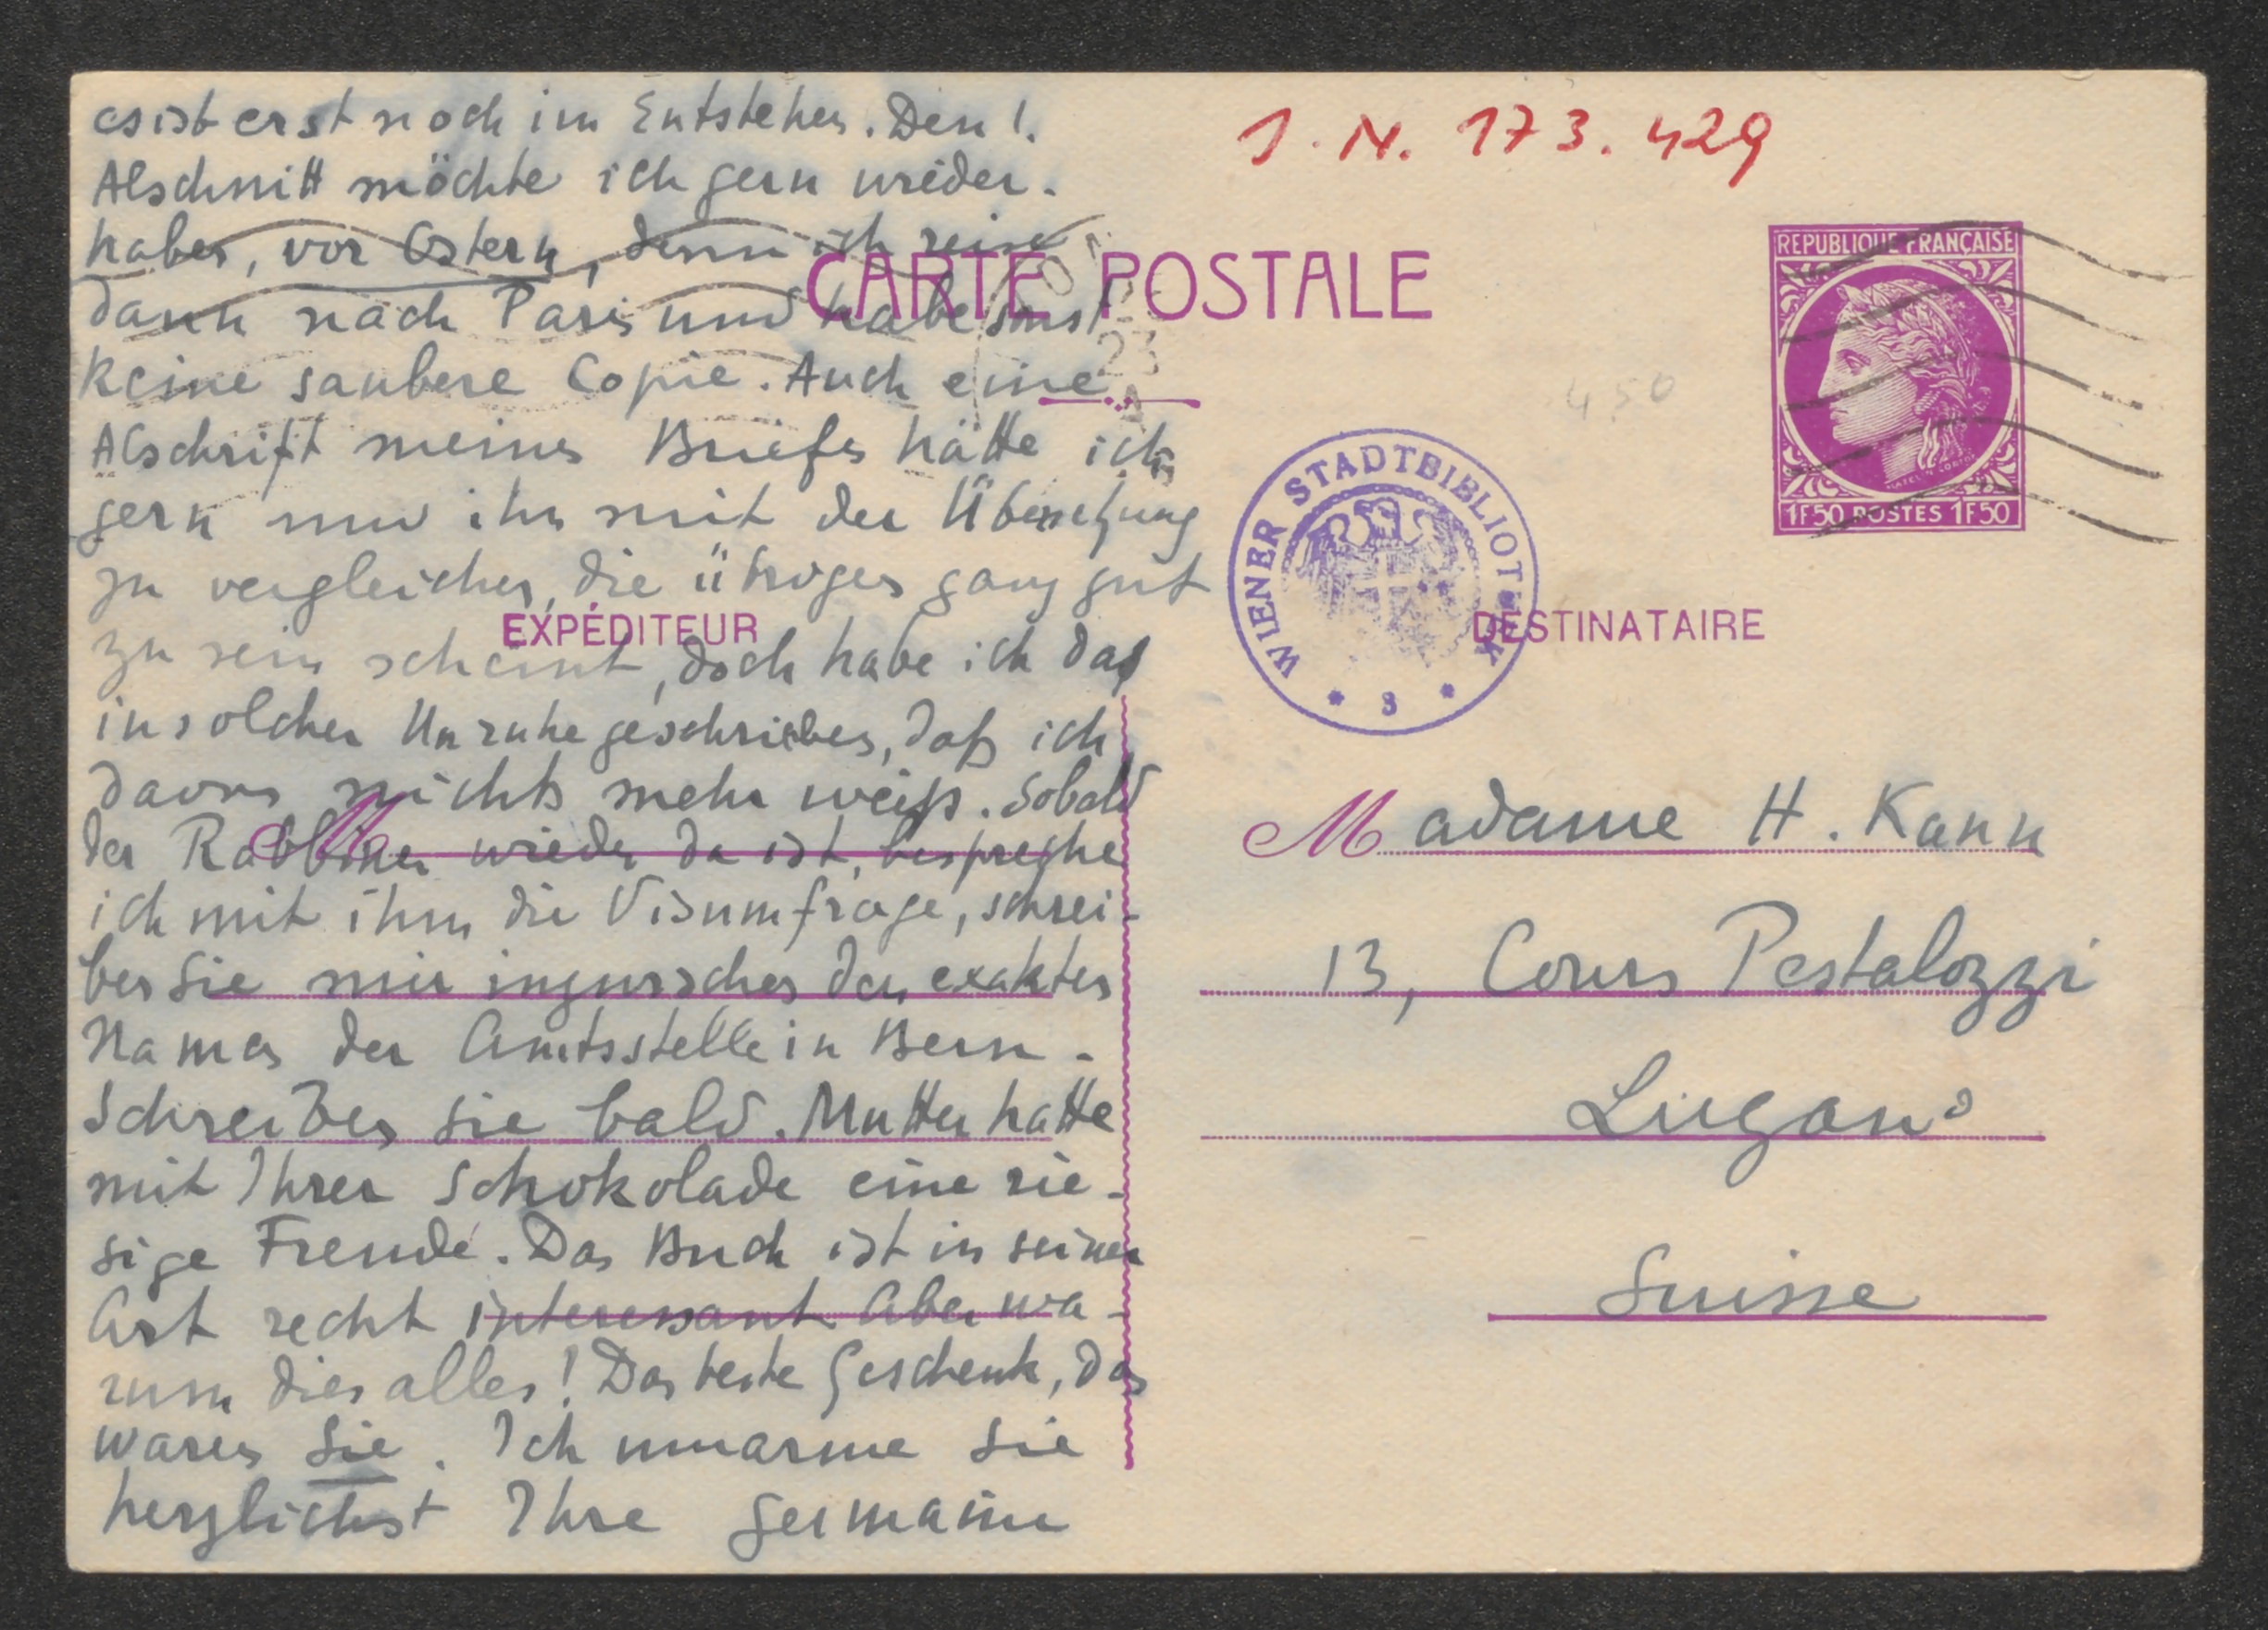 es ist erst noch im Entstehen. Den 1.
Abschnitt möchte ich gern wieder-
haben, vor Ostern, denn ich reise
dann nach Paris und habe sonst
keine saubere Copie. Auch eine
Abschrift meines Briefes hätte ich
gern um ihn mit der Übersetzung
zu vergleichen, die übrigens ganz gut
zu sein scheint, doch habe ich das
in solcher Unruhe geschrieben, daß ich
davon nichts mehr weiß. Sobald
der Rabbiner wieder da ist, bespreche
ich mit ihm die Visumfrage, schrei-
ben Sie mir inzwischen den exakten
Namen der Amtsstelle in Bern.
Schreiben Sie bald. Mutter hatte
mit Ihrer Schokolade eine rie-
sige Freude. Das Buch ist in seiner
Art recht interessant. Aber wa-
rum dies alles! Das beste Geschenk, das
waren Sie. Ich umarme Sie
herzlichst Ihre Germaine
J. N. 173.429
CARTE POSTALE
REPUBLIQUE FRANÇAISE
1F50 POSTES 1F50
23
450
WIENER STADTBIBLIOTHEK
* 3 *
EXPÉDITEUR
M
DESTINATAIRE
Madame H. Kann
13, Cours Pestalozzi
Lugano
Suisse